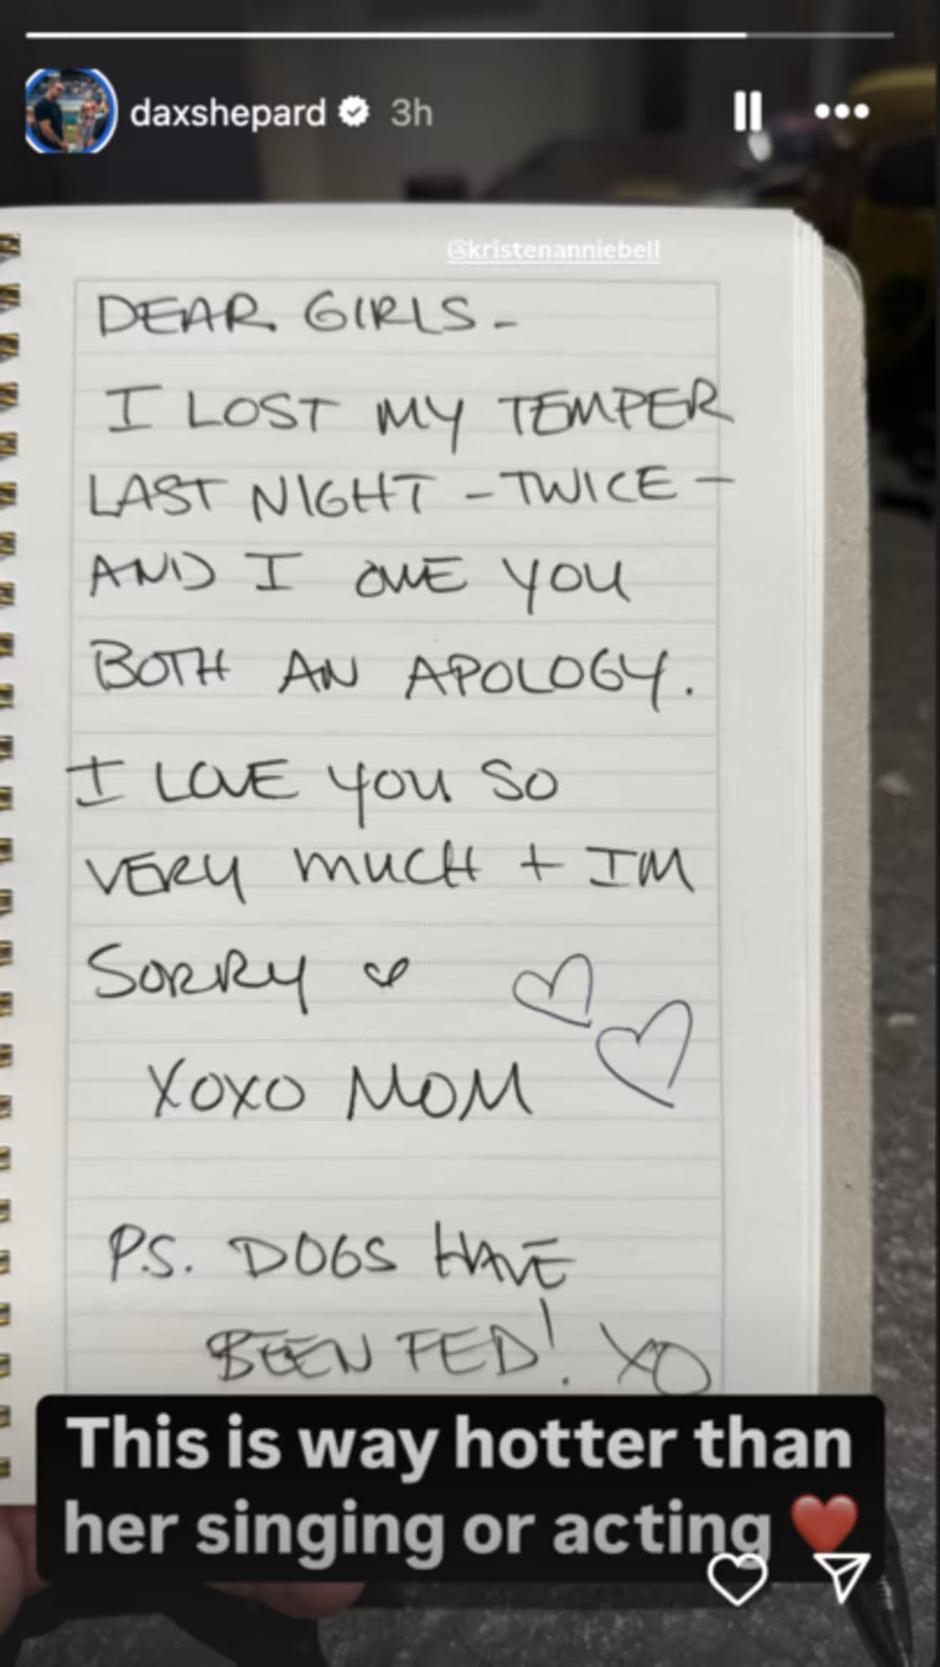 daxshepard 3h
@kristenanniebell
DEAR GIRLS -
I LOST MY TEMPER
LAST NIGHT - TWICE -
AND I OWE YOU
BOTH AN APOLOGY.
I LOVE YOU SO
VERY MUCH + IM
SORRY ♥
XOXO MOM
P.S. DOGS HAVE
BEEN FED! XO
This is way hotter than
her singing or acting ❤️